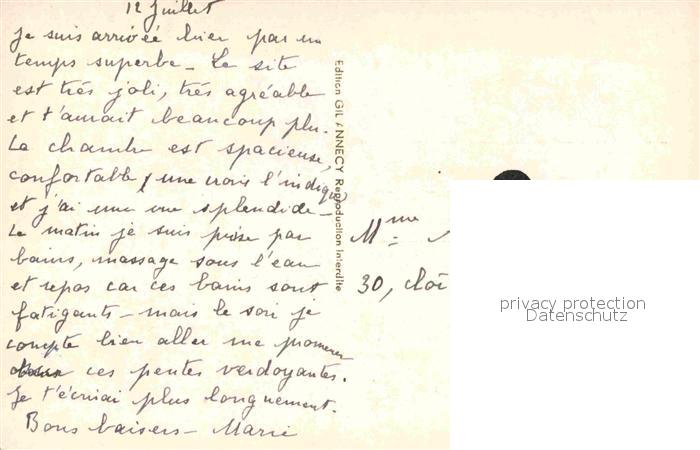 12 juillet
Je suis arrivée hier par un
temps superbe - Le site
est très joli, très agréable
et t'aurait beaucoup plu.
La chambre est spacieuse,
confortable (une croix l'indique)
et j'ai une vue splendide -
Le matin je suis prise par
bains, massage sous l'eau
et repos car ces bains sont
fatigants - mais le soir je
compte bien aller me promener
ces pentes verdoyantes.
Je t'écrirai plus longuement.
Bons baisers - Marie
Edition GIL ANNECY Reproduction Interdite
Mme
30, cloî
privacy protection
Datenschutz